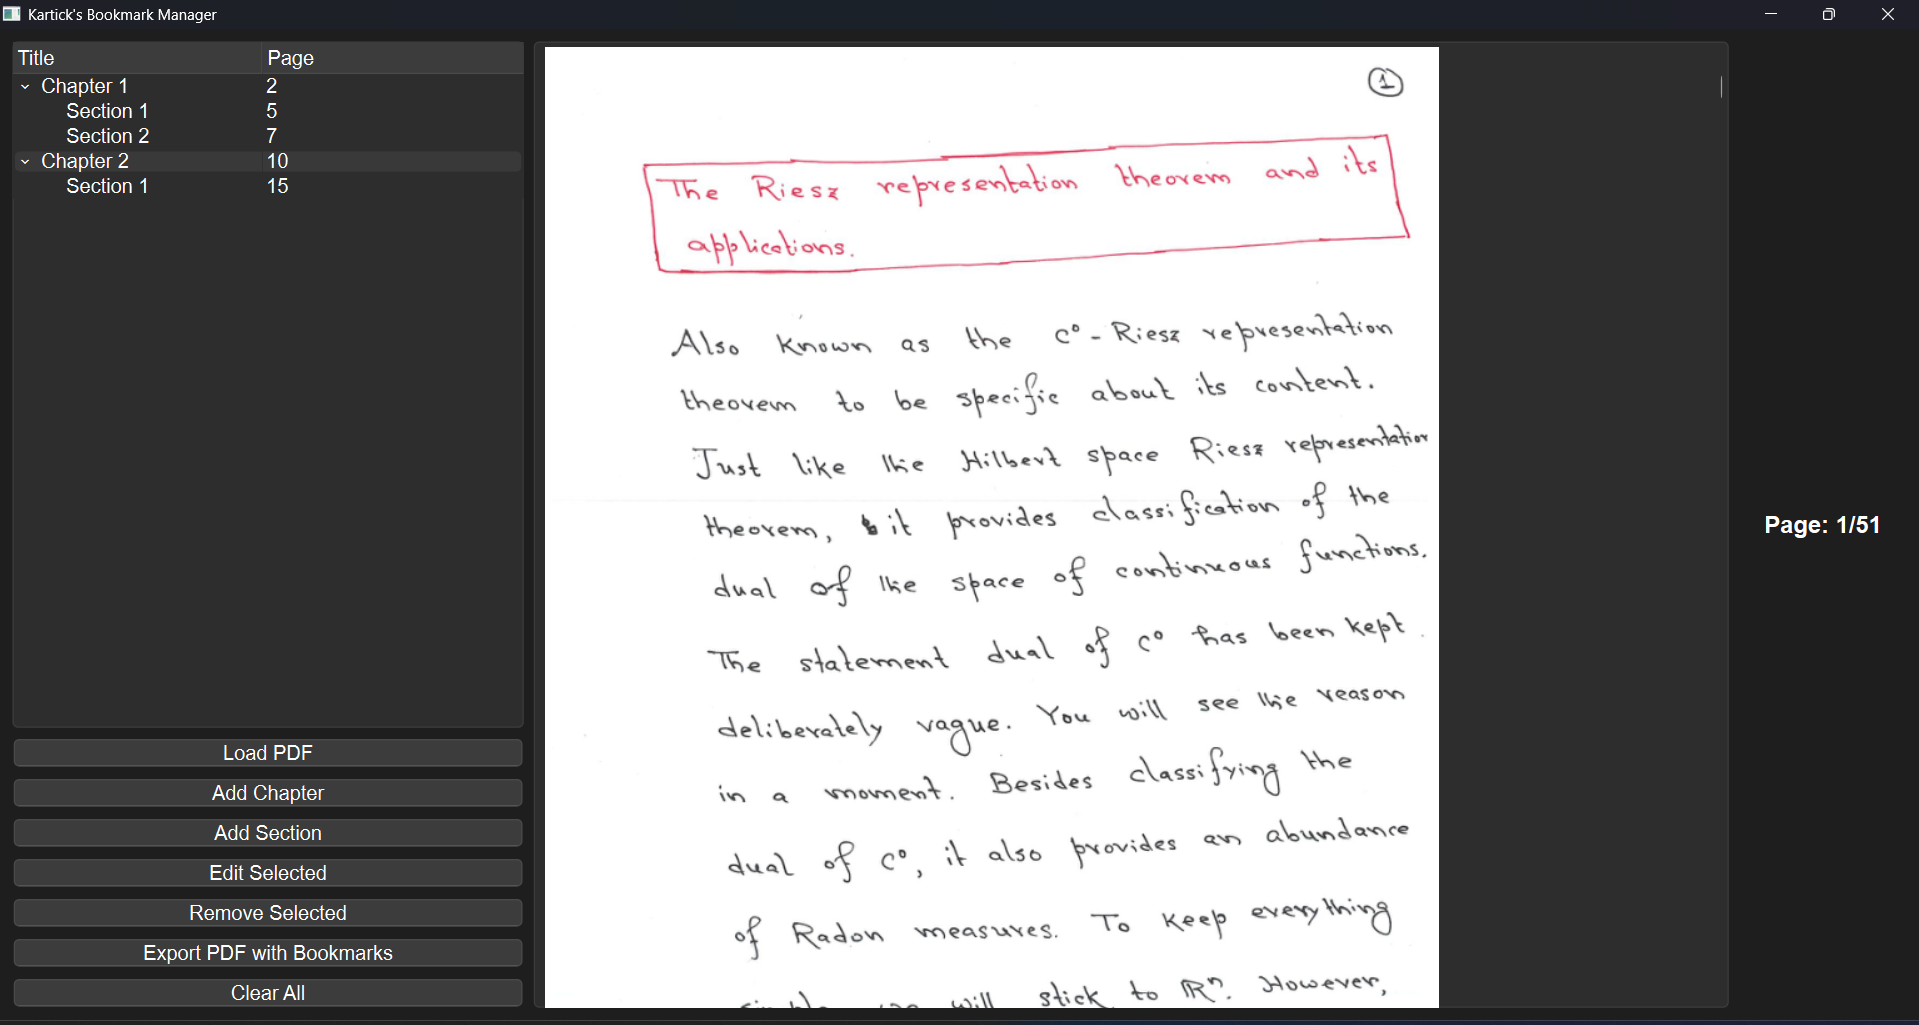 Kartick's Bookmark Manager
Title Page
Chapter 1 2
Section 1 5
Section 2 7
Chapter 2 10
Section 1 15
Load PDF
Add Chapter
Add Section
Edit Selected
Remove Selected
Export PDF with Bookmarks
Clear All
1
The Riesz representation theorem and its
applications.
Also known as the C⁰ - Riesz representation
theorem to be specific about its content.
Just like the Hilbert space Riesz representation
theorem, it provides classification of the
dual of the space of continuous functions.
The statement dual of C⁰ has been kept
deliberately vague. You will see the reason
in a moment. Besides classifying the
dual of C⁰, it also provides an abundance
of Radon measures. To keep everything
will stick to ℝⁿ. However,
Page: 1/51